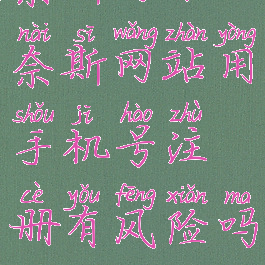 nài sī wǎng zhàn yòng
奈斯网站用
shǒu jī hào zhù
手机号注
cè yǒu fēng xiǎn ma
册有风险吗